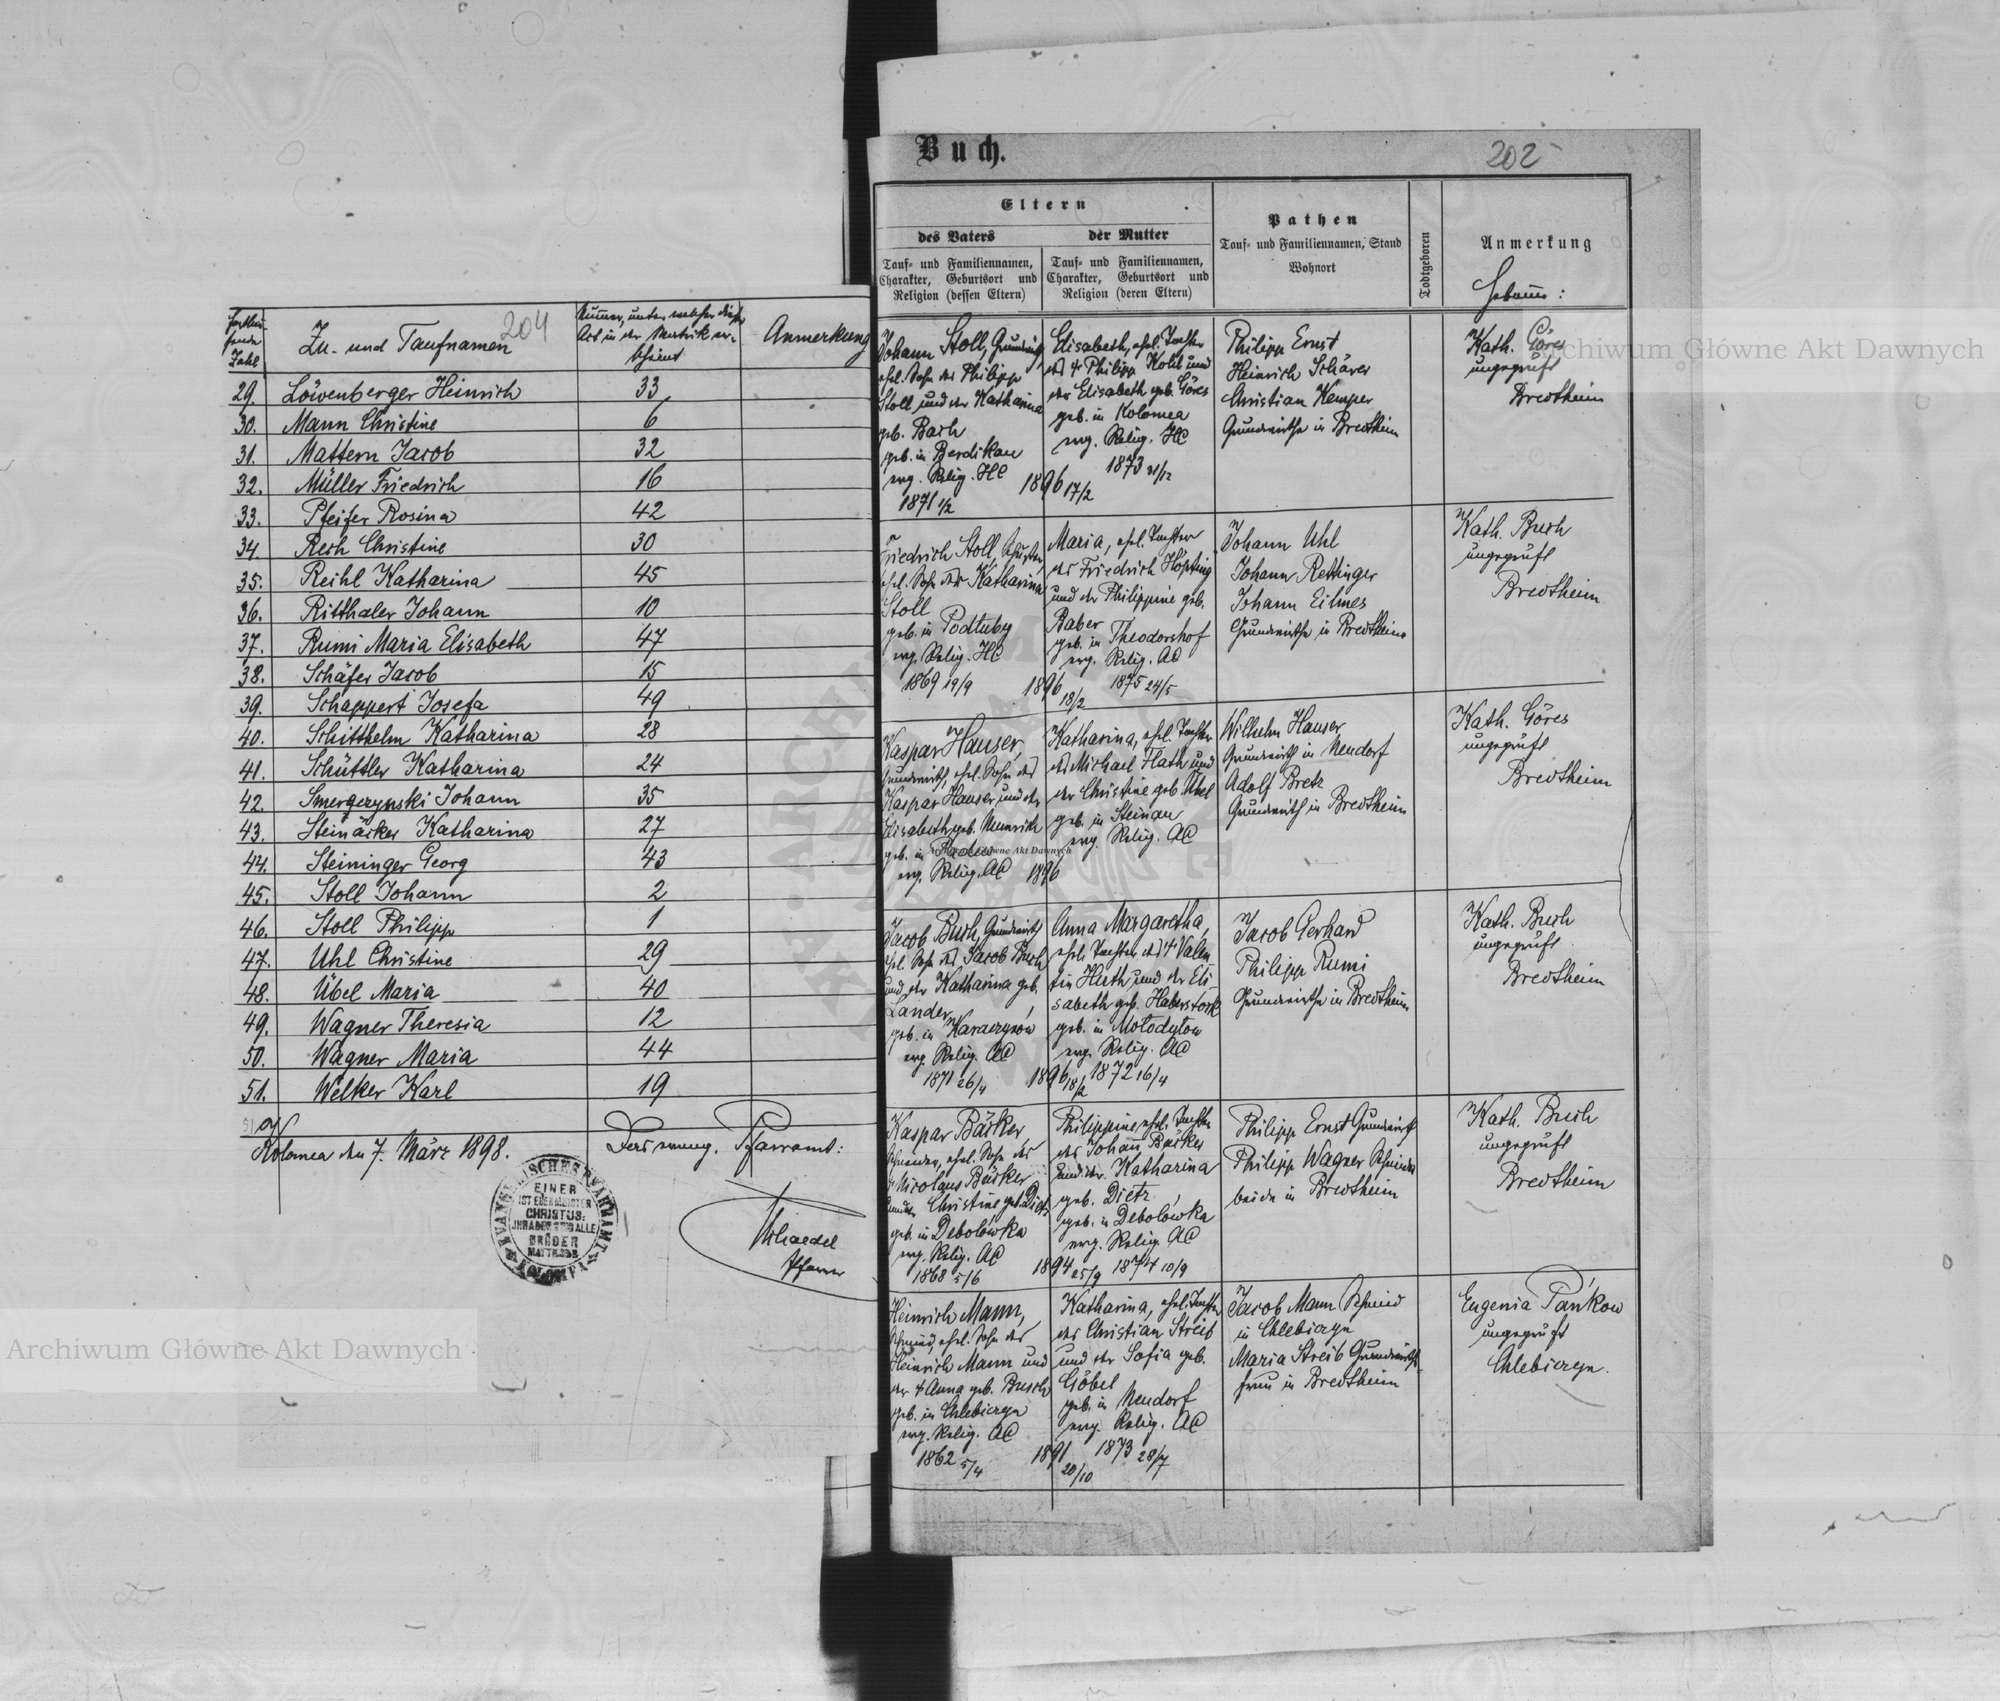 204
Zu- und Taufnamen
Nummer, unter welcher dieser
Act in der Matrik er-
scheint
Anmerkung
Zahl
29. Löwenberger Heinrich 33
30. Mann Christine 6
31. Mattern Jacob 32
32. Müller Friedrich 16
33. Pfeifer Rosina 42
34. Resh Christine 30
35. Reihl Katharina 45
36. Ritthaler Johann 10
37. Rumi Maria Elisabeth 47
38. Schäfer Jacob 15
39. Schappert Josefa 49
40. Schitthelm Katharina 28
41. Schüttler Katharina 24
42. Smerczynski Johann 35
43. Steinäcker Katharina 27
44. Steininger Georg 43
45. Stoll Johann 2
46. Stoll Philipp 1
47. Uhl Christine 29
48. Übel Maria 40
49. Wagner Theresia 12
50. Wagner Maria 44
51. Welker Karl 19
Kolomea den 7. März 1898.
Das evang. Pfarramt:
Pfarrer
EVANGELISCHES PFARRAMT
KOLOMEA
EINER
IST EUER MEISTER
CHRISTUS:
IHR ABER SEID ALLE
BRÜDER
MATTH. 23,8
Buch.
202
Eltern
des Vaters
der Mutter
Tauf- und Familiennamen,
Charakter, Geburtsort und
Religion (dessen Eltern)
Tauf- und Familiennamen,
Charakter, Geburtsort und
Religion (deren Eltern)
Pathen
Tauf- und Familiennamen, Stand
Wohnort
Todtgeboren
Anmerkung
Hebamme:
Johann Stoll, Grundwirth,
ehel. Sohn des Philipp
Stoll und der Katharina
geb. Bach
geb. in Berdikau
evg. Relig. HC
1871 1/2
1896 17/2
Elisabeth, ehel. Tochter
des † Philipp Kohl und
der Elisabeth geb. Göres
geb. in Kolomea
evg. Relig. HC
1873 31/12
Philipp Ernst
Heinrich Schärer
Christian Kemper
Grundwirthe in Bredtheim
Kath. Göres
ungeprüft
Bredtheim
Friedrich Stoll, Schuster,
ehel. Sohn der Katharina
Stoll
geb. in Podłuby
evg. Relig. HC
1869 19/9
1896 18/2
Maria, ehel. Tochter
des Friedrich Höpting
und der Philippine geb.
Baber
geb. in Theodorshof
evg. Relig. AC
1875 24/5
Johann Uhl
Johann Rettinger
Johann Eilmes
Grundwirthe in Bredtheim
Kath. Bush
ungeprüft
Bredtheim
Kaspar Hauser,
Grundwirth, ehel. Sohn des
Kaspar Hauser und der
Elisabeth geb.
geb. in
evg. Relig. AC
1896
Katharina, ehel. Tochter
des Michael Flath und
der Christine geb. Uhl
geb. in Steinau
evg. Relig. AC
Wilhelm Hauser
Grundwirth in Neudorf
Adolf Bretz
Grundwirth in Bredtheim
Kath. Göres
ungeprüft
Bredtheim
Jacob Bush, Grundwirth
ehel. Sohn des Jacob Bush
und der Katharina geb.
Lander
geb. in Karaczynów
evg. Relig. AC
1871 26/4
1896 18/2
Anna Margaretha,
ehel. Tochter des † Valen-
tin Huth und der Eli-
sabeth geb. Haberstock
geb. in Mołodyłow
evg. Relig. AC
1872 16/4
Jacob Gerhard
Philipp Rumi
Grundwirthe in Bredtheim
Kath. Bush
ungeprüft
Bredtheim
Kaspar Bäsker
Schneider, ehel. Sohn des
† Nicolaus Bäsker
und der Christine geb. Dietz
geb. in Debolówka
evg. Relig. AC
1868 5/6
1894 25/9
Philippine, ehel. Tochter
des Johann Bäsker
und der Katharina
geb. Dietz
geb. in Debolówka
evg. Relig. AC
1874 10/9
Philipp Ernst Grundwirth
Philipp Wagner Schneider
beide in Bredtheim
Kath. Bush
ungeprüft
Bredtheim
Heinrich Mann,
Schmied, ehel. Sohn des
Heinrich Mann und
der † Anna geb. Busch
geb. in Chlebiczyn
evg. Relig. AC
1862 5/4
1891 20/10
Katharina, ehel. Tochter
des Christian Streib
und der Sofia geb.
Göbel
geb. in Neudorf
evg. Relig. AC
1873 28/7
Jacob Mann Schmied
in Chlebiczyn
Maria Streib Grundwirths-
frau in Bredtheim
Eugenia Pańkow
ungeprüft
Chlebiczyn.
Archiwum Główne Akt Dawnych
Archiwum Główne Akt Dawnych